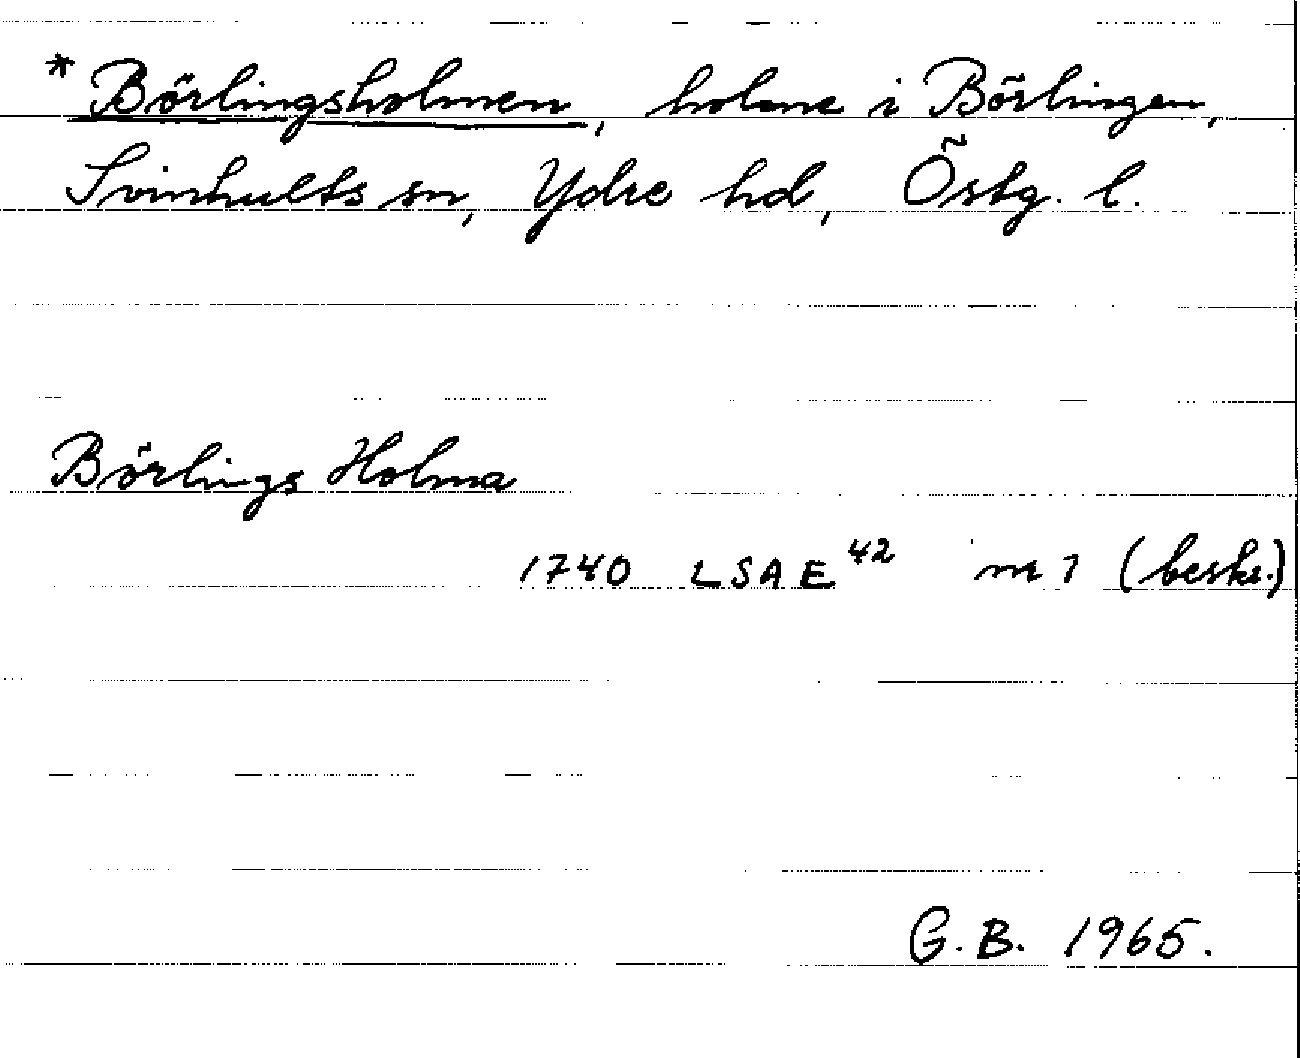 * Börlingsholmen, holme i Börlingen,
Svinhults sn, Ydre hd, Östg. l.
Börlings Holma
1740 LSA E⁴² nr 7 (beskr.)
G. B. 1965.